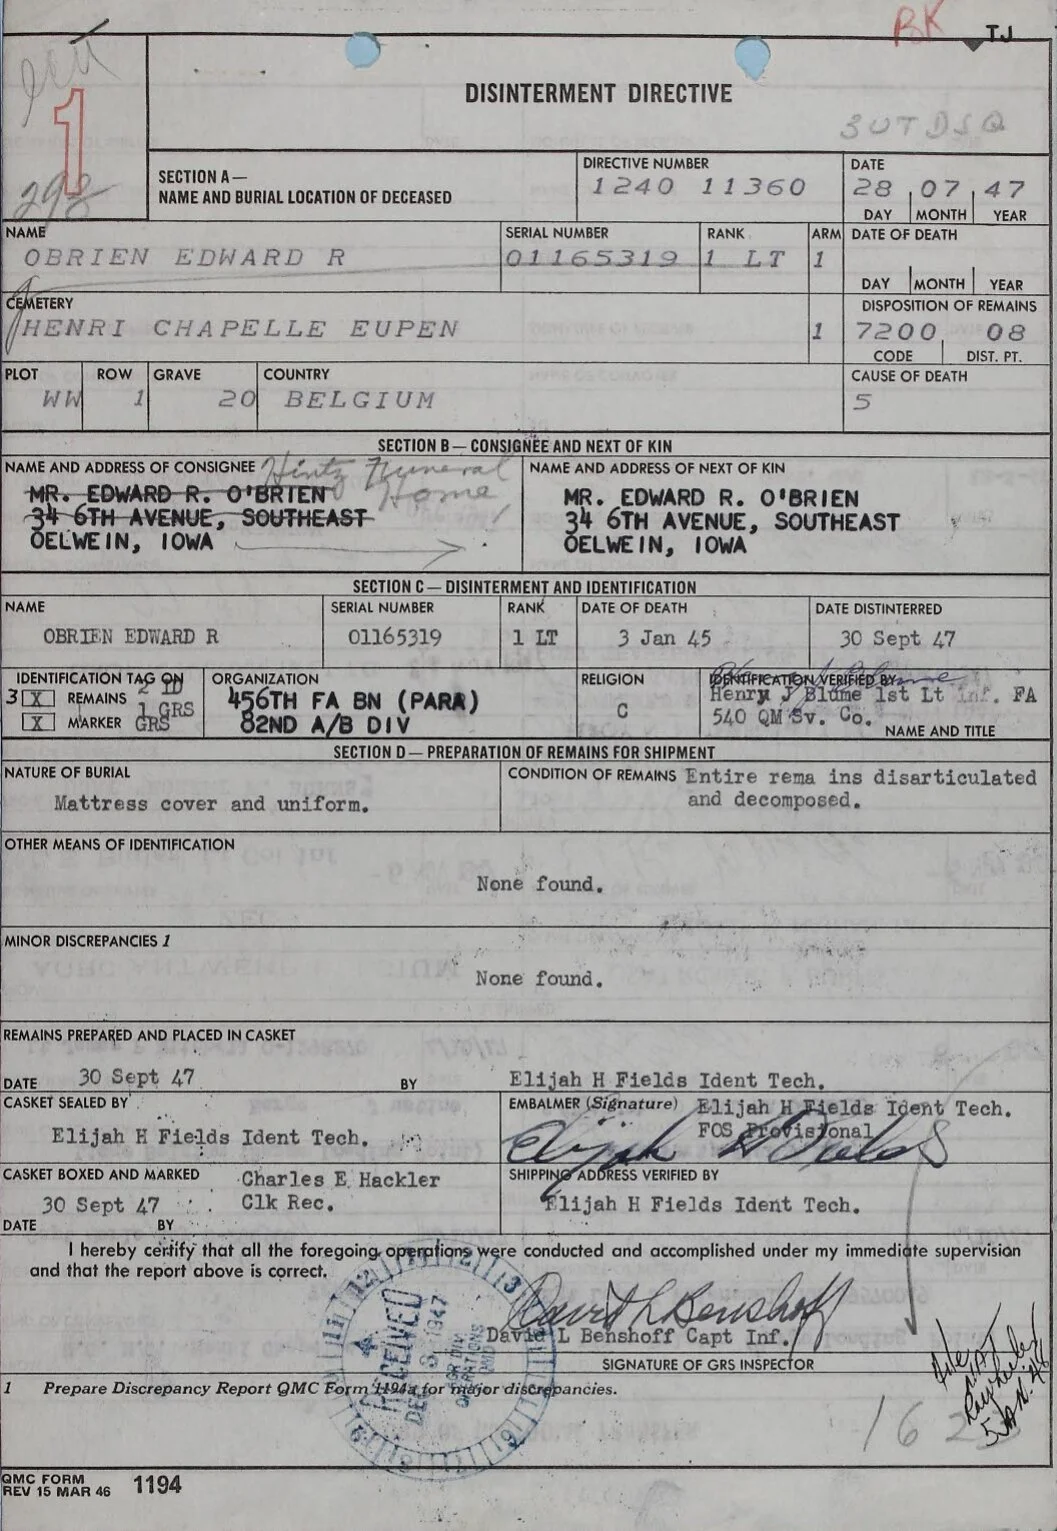 BK
TJ
1
298
DISINTERMENT DIRECTIVE
3UTDSQ
SECTION A—
NAME AND BURIAL LOCATION OF DECEASED
DIRECTIVE NUMBER
1240 11360
DATE
28 07 47
DAY MONTH YEAR
NAME
OBRIEN EDWARD R
SERIAL NUMBER
01165319
RANK
1 LT
ARM
1
DATE OF DEATH
DAY MONTH YEAR
CEMETERY
HENRI CHAPELLE EUPEN
1
DISPOSITION OF REMAINS
7200 08
CODE DIST. PT.
PLOT ROW GRAVE COUNTRY
WW 1 20 BELGIUM
CAUSE OF DEATH
5
SECTION B — CONSIGNEE AND NEXT OF KIN
NAME AND ADDRESS OF CONSIGNEE
Hintz Funeral
Home
MR. EDWARD R. O'BRIEN
34 6TH AVENUE, SOUTHEAST
OELWEIN, IOWA
NAME AND ADDRESS OF NEXT OF KIN
MR. EDWARD R. O'BRIEN
34 6TH AVENUE, SOUTHEAST
OELWEIN, IOWA
SECTION C — DISINTERMENT AND IDENTIFICATION
NAME SERIAL NUMBER RANK DATE OF DEATH DATE DISTINTERRED
OBRIEN EDWARD R 01165319 1 LT 3 Jan 45 30 Sept 47
IDENTIFICATION TAG ON
2 ID
3 X REMAINS 1 GRS
X MARKER GRS
ORGANIZATION
456TH FA BN (PARA)
82ND A/B DIV
RELIGION
C
IDENTIFICATION VERIFIED BY
Henry J Blume 1st Lt Inf. FA
540 QM Sv. Co.
NAME AND TITLE
SECTION D — PREPARATION OF REMAINS FOR SHIPMENT
NATURE OF BURIAL
Mattress cover and uniform.
CONDITION OF REMAINS Entire rema ins disarticulated
and decomposed.
OTHER MEANS OF IDENTIFICATION
None found.
MINOR DISCREPANCIES 1
None found.
REMAINS PREPARED AND PLACED IN CASKET
DATE 30 Sept 47 BY Elijah H Fields Ident Tech.
CASKET SEALED BY
Elijah H Fields Ident Tech.
EMBALMER (Signature) Elijah H Fields Ident Tech.
FOS Provisional
Elijah H Fields
CASKET BOXED AND MARKED
Charles E Hackler
30 Sept 47 Clk Rec.
DATE BY
SHIPPING ADDRESS VERIFIED BY
Elijah H Fields Ident Tech.
I hereby certify that all the foregoing operations were conducted and accomplished under my immediate supervision
and that the report above is correct.
RECEIVED
David L Benshoff
David L Benshoff Capt Inf.
SIGNATURE OF GRS INSPECTOR
1 Prepare Discrepancy Report QMC Form 1194a for major discrepancies.
QMC FORM
REV 15 MAR 46 1194